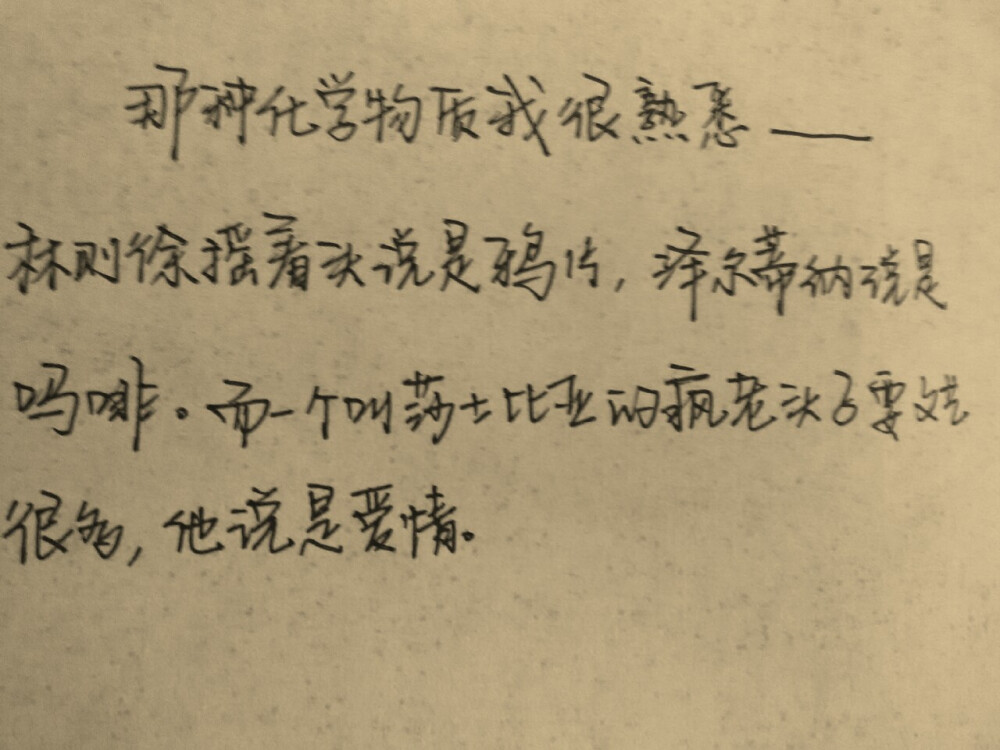 那种化学物质我很熟悉——
林则徐摇着头说是鸦片，泽尔蒂纳说是
吗啡。而一个叫莎士比亚的疯老头子要文艺
很多，他说是爱情。